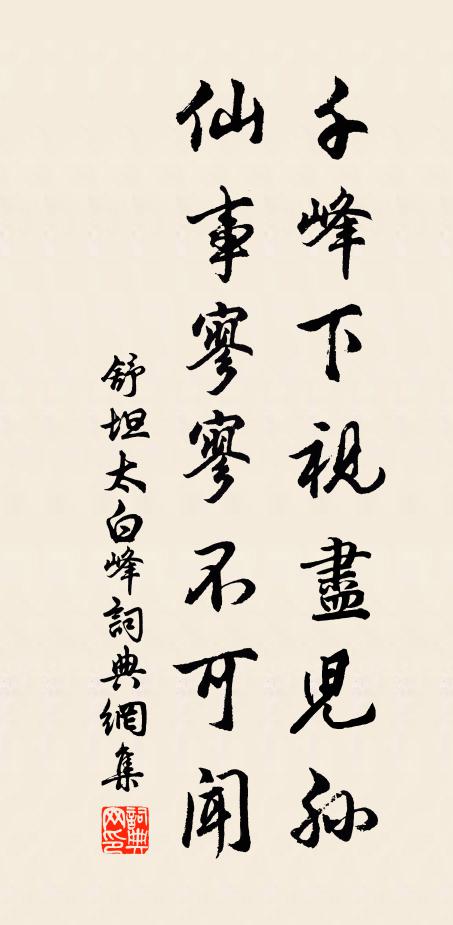 千峰下視盡兒孫
仙事寥寥不可聞
舒坦太白峰詞典網集
詞典網印